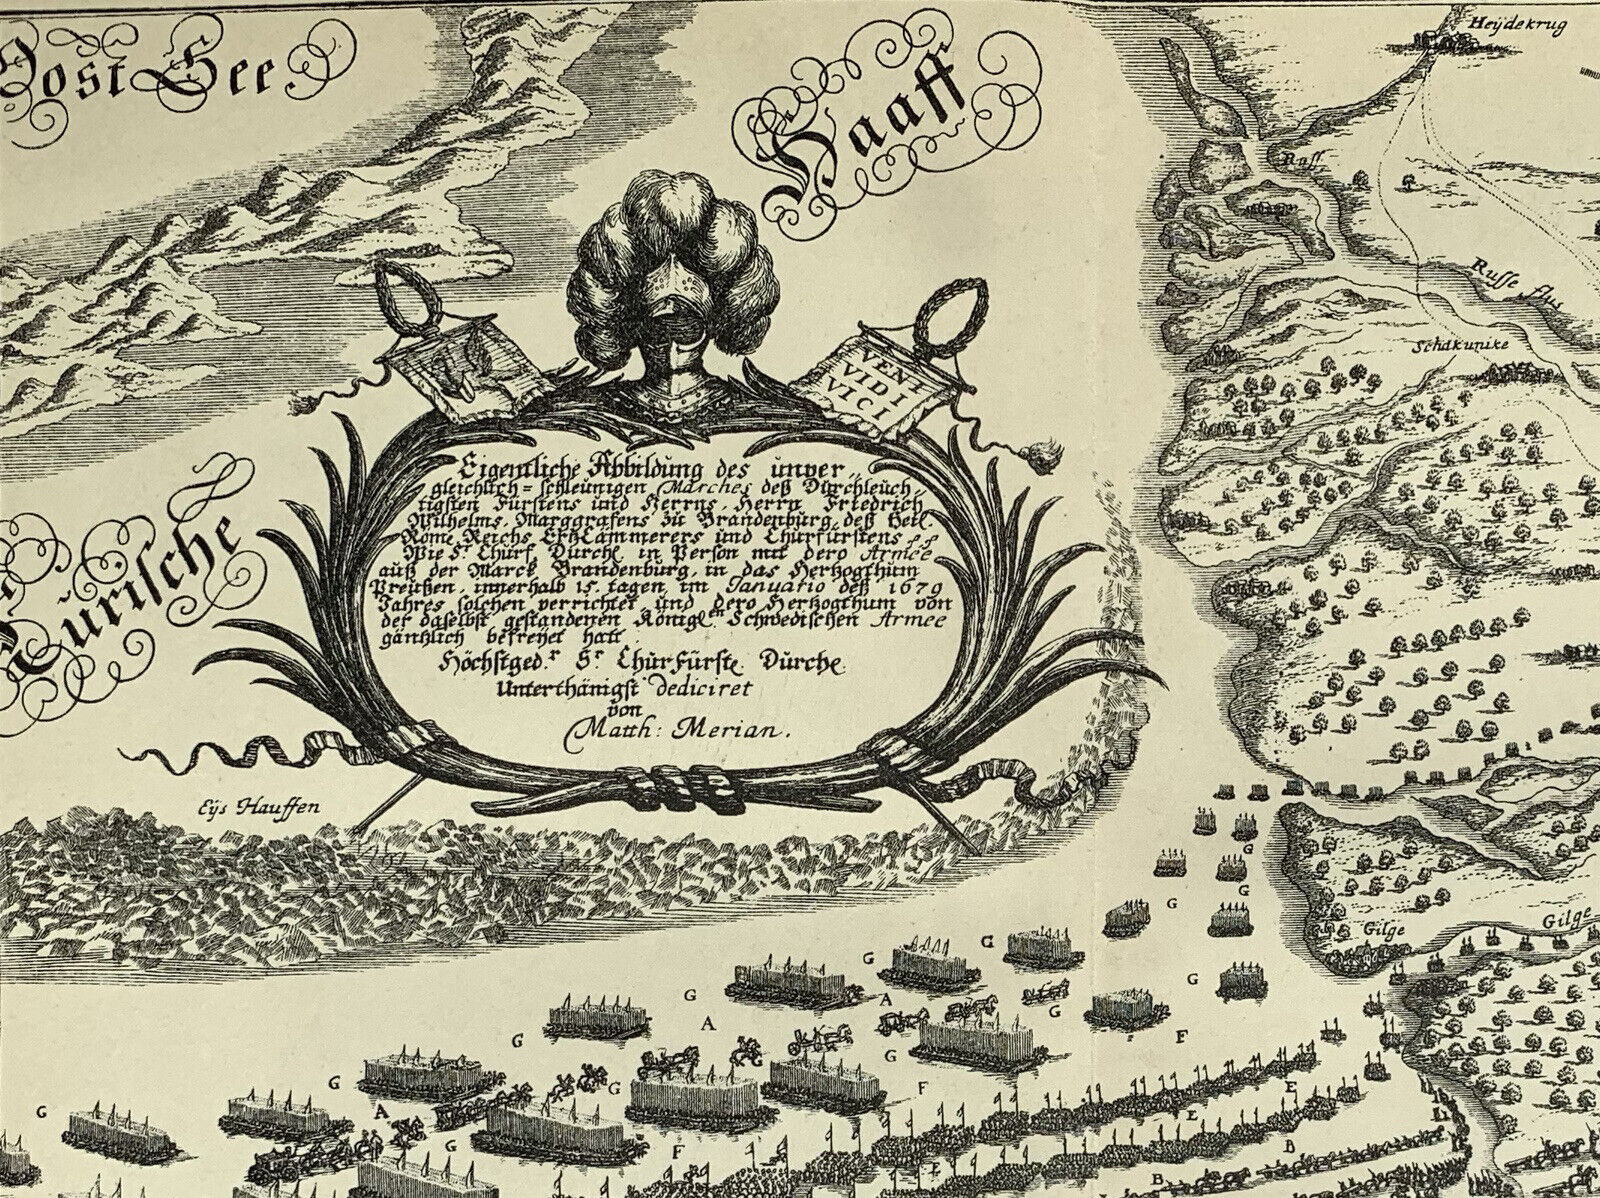 Oost See
Haaff
Heÿdekrug
Russ
Russe flus
Schakunike
VENI
VIDI
VICI
Eigentliche Abbildung des unver„
gleichlich=schleunigen Marches deß Dürchleuch„
tigsten Fürstens und Herrns, Herrn Friedrich
Wilhelms, Marggrafens zü Brandenbürg, deß Heil.
Röme Reichs Ertzcämmerers und Chürfürstens
Wie Sr. Chürf. Dürchl. in Person mit dero Armée
auß der Marck Brandenbürg, in das Hertzogthum
Preußen, innerhalb 15. tagen im Januario deß 1679
Jahres solchen verrichtet und dero Hertzogthum von
der daselbst gestandenen Königlen Schwedischen Armee
gäntzlich befreyet hatt
Höchstged.r Sr Chürfürstl. Dürchl.
Unterthänigst dediciret
von
Matth: Merian.
Cürische
Eÿs Hauffen
Gilge
Gilge
G
G
G
G
G
G
G
A
G
A
G
G
F
G
G
G
F
E
G
A
G
F
E
E
B
B